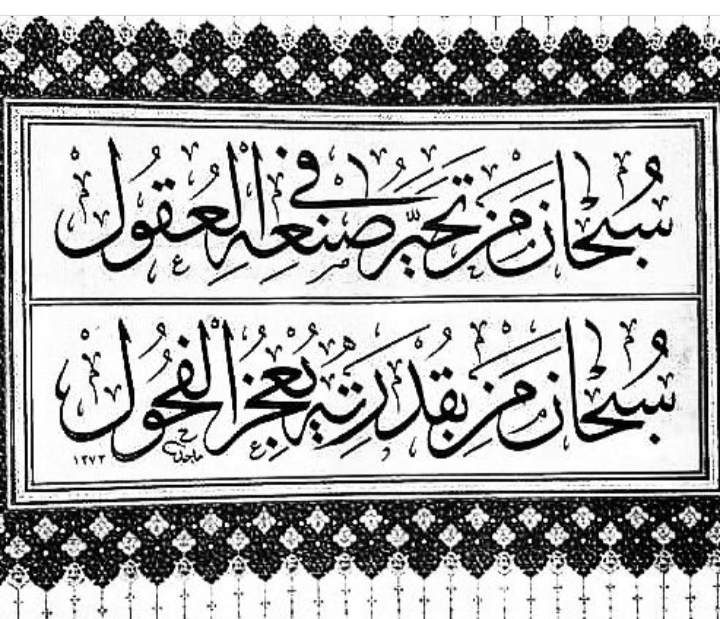 سُبْحَانَ مَنْ تَحَيَّرَ فِي صُنْعِهِ الْعُقُول
سُبْحَانَ مَنْ بِقُدْرَتِهِ يُعْجِزُ الْفُحُول
ماجد
١٣٧٣